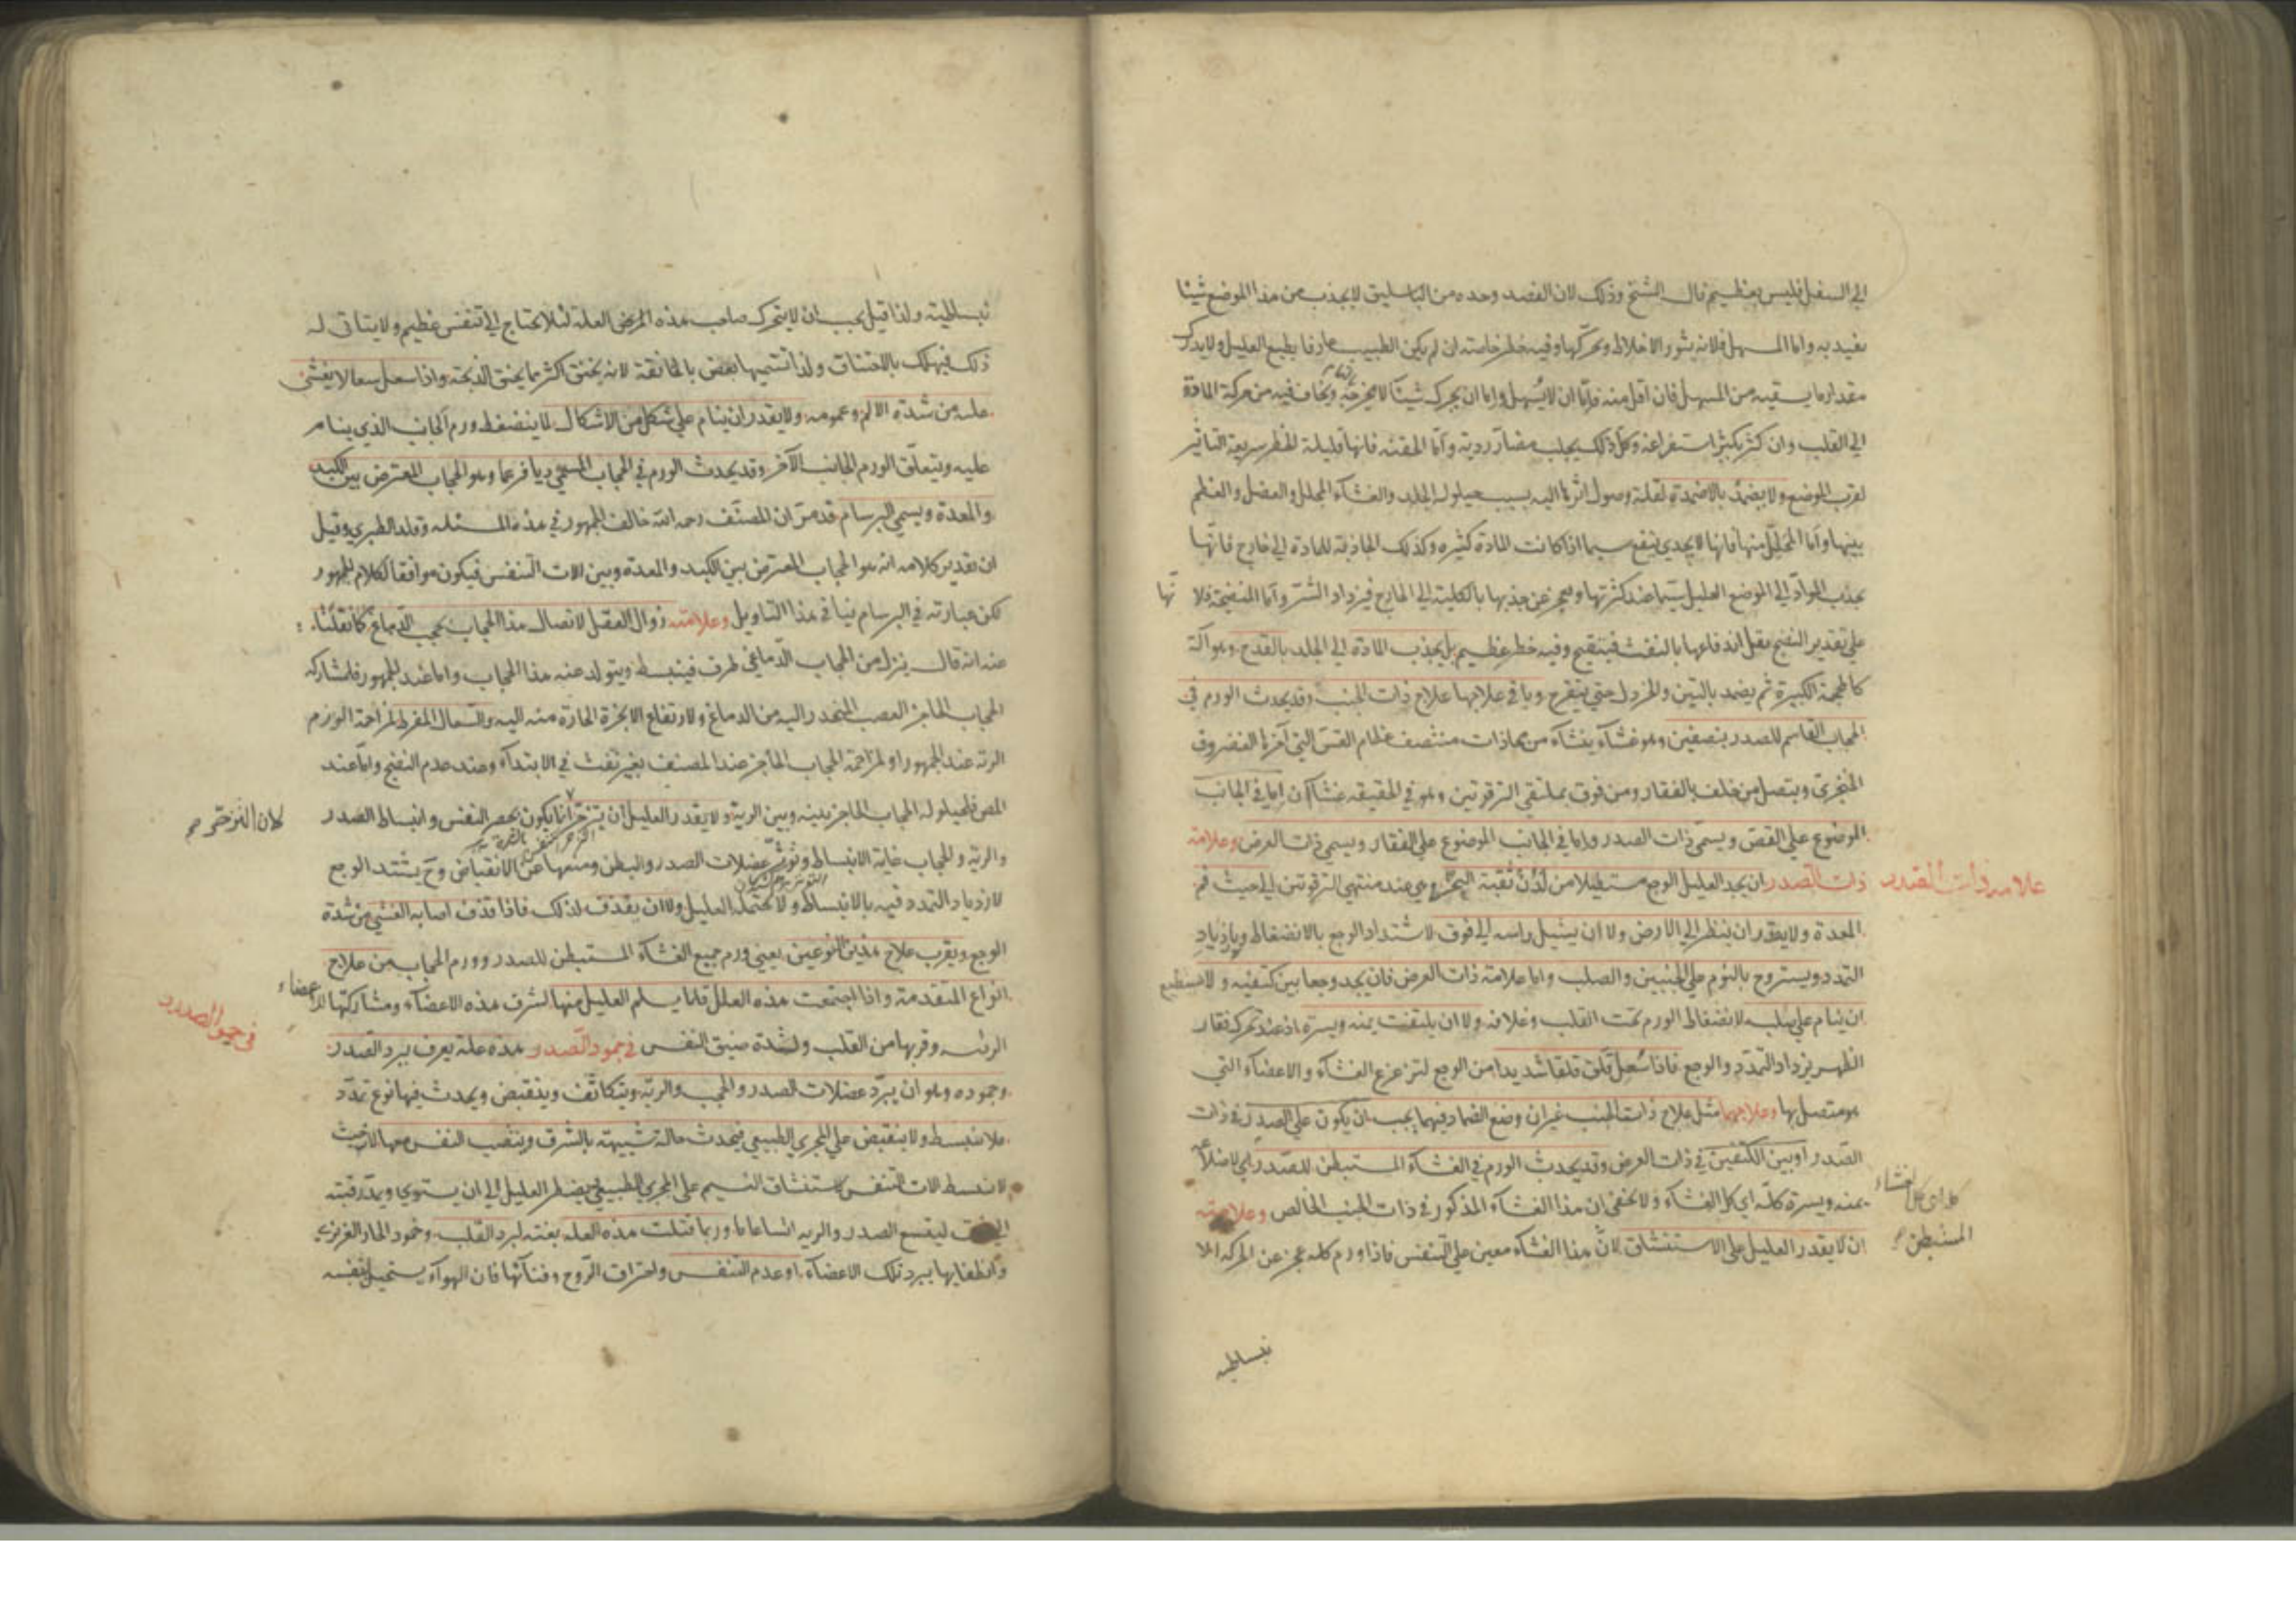 الي السفل فليس بعظيم قال الشيخ وذلك لان الفصد وحده من الباسليق لا يجذب من هذا الموضع شيئا
يعتد به واما المسهل فلانه يثور الاخلاط ويحركها وفيه خطر خاصة ان لم يكن الطبيب عارفا بطبع العليل ولا يدرك
مقدار ما يسقيه من المسهل فان اقل منه فاما ان لا يسهل واما ان يحرك شيئا لا يخرجه ويخاف فيه من حركة المادة
الي القلب وان كثر يكثر استفراغه وكل ذلك يجلب مضار ردية واما الحقنة فانها قليلة الخطر سريعة التاثير
لقرب الموضع ولا يضمد بالاضمدة لقلة وصول اثرها اليه بسبب حيلولة الجلد والغشاء المجلل والعضل والعظم
بينها واما المحلل منها فانها لا يجدي بنفع سيما اذا كانت المادة كثيره وكذلك الجاذبة للمادة الي خارج فانها
يجذب المواد الي الموضع العليل سيما عند كثرتها ويعجز عن جذبها بالكلية الي الخارج فيزداد الشر واما المنضجة فلانها
علي تقدير النضج يقل اندفاعها بالنفث فيتقيح وفيه خطر عظيم بل يجذب المادة الي الجلد بالقدح وهو آلة
كالمحجمة الكبيرة ثم يضمد بالتين والخردل حتي يتقرح وباقي علاجها علاج ذات الجنب وقد يحدث الورم في
الحجاب القاسم للصدر بنصفين وهو غشاء ينشاء من محاذات منتصف عظام القس التي آخرها الغضروف
الحنجري ويتصل من خلف بالفقار ومن فوق بملتقي الترقوتين وهو في الحقيقة غشاآن اما في الجانب
الموضوع علي القص ويسمي ذات الصدر واما في الجانب الموضوع علي الفقار ويسمي ذات العرض وعلامة
علامه ذات الصدر
ذات الصدر ان يجد العليل الوجع مستطيلا من لدن ثغبة النحر وهي عند منتهي الترقوتين الي حيث فم
المعدة ولا يقدر ان ينظر الي الارض ولا ان يشيل راسه الي فوق لاشتداد الوجع بالانضغاط وبازدياد
التمدد ويستروح بالنوم علي الجنبين والصلب واما علامة ذات العرض فان يجد وجعا بين كتفيه ولا يستطيع
ان ينام علي صلبه لانضغاط الورم تحت القلب وغلافه ولا ان يلتفت يمنه ويسره اذ عند تحرك فقار
الظهر يزداد التمدد والوجع فاذا سعل قلق قلقا شديدا من الوجع لتزعزع الغشاء والاعضاء التي
هو متصل بها وعلاجهما مثل علاج ذات الجنب غير ان وضع الضماد فيهما يجب ان يكون علي الصدر في ذات
الصدر او بين الكتفين في ذات العرض وقد يحدث الورم في الغشاء المستبطن للصدر اي لاضلاعه
يمنه ويسره كله اي كل الغشاء ولا يخفي ان هذا الغشاء المذكور في ذات الجنب الخالص وعلامته
كله اي كل الغشاء
المستبطن
ان لا يقدر العليل علي الاستنشاق لان هذا الغشاء معين علي التنفس فاذا ورم كله عجز عن الحركة الا
نبساطيه
نبساطية ولذا قيل يجب ان لا يتحرك صاحب هذه المرض العلة لئلا يحتاج الي تنفس عظيم ولا يتاتي له
ذلك فيهلك بالاختناق ولذا تسميها بعض بالخانقة لانه يخنق اكثر مما يخنق الذبحة واذا سعل سعالا يغشي
عليه من شدة الالم وعمومه ولا يقدر ان ينام علي شكل من الاشكال لما ينضغط ورم الجانب الذي ينام
عليه ويتعلق الورم الجانب الآخر وقد يحدث الورم في الحجاب المسمي ديافرغما وهو الحجاب المعترض بين الكبد
والمعدة ويسمي البرسام قد مر ان المصنف رحمه الله خالف الجمهور في هذه المسئله وقلد الطبري وقيل
ان تقدير كلامه انه هو الحجاب المعترض بين الكبد والمعدة وبين الات التنفس فيكون موافقا لكلام الجمهور
لكن عبارته في البرسام ينافي هذا التاويل وعلامته زوال العقل لاتصال هذا الحجاب بحجب الدماغ كما نقلنا
عنه انه قال ينزل من الحجاب الدماغي طرف فينبسط ويتولد عنه هذا الحجاب واما عند الجمهور فلمشاركه
الحجاب الحاجز العصب المنحدر اليه من الدماغ ولارتفاع الابخرة الحارة منه اليه والسعال المفرط لمزاحمة الورم
الرئة عند الجمهور او لمزاحمة الحجاب الحاجز عند المصنف بغير نفث في الابتداء وعند عدم النضج واما عند
المص فلحيلوله الحجاب الحاجز بينه وبين الرية ولا يقدر العليل ان يتزحر انما يكون بحصر النفس وانبساط الصدر
لان التزحر
والرية والحجاب غاية الانبساط وتوتر عضلات الصدر والبطن ومنعها عن الانقباض وح يشتد الوجع
لازدياد التمدد فيه بالانبساط ولا يحتمله العليل ولا ان يقذف لذلك فاذا قذف اصابه الغشي من شدة
الوجع ويقرب علاج هذين النوعين يعني ورم جميع الغشاء المستبطن للصدر وورم الحجاب من علاج
انواع المتقدمة واذا اجتمعت هذه العلل قلما يسلم العليل منها لشرف هذه الاعضاء ومشاركتها للاعضاء
الرئسه وقربها من القلب ولشدة ضيق النفس في جمود الصدر هذه علة يعرف ببرد الصدر
في جمود الصدر
وجموده وهو ان يبرد عضلات الصدر والحجب والرية ويتكاثف وينقبض ويحدث فيها نوع تمدد
فلا ينبسط ولا ينقبض علي المجري الطبيعي فيحدث حالة شبيهة بالشرق وينتصب النفس معها لا بحيث
لا تنبسط الات التنفس لاستنشاق النسيم علي المجري الطبيعي يضطر العليل الي ان يستوي ويمد رقبته
ليتسع الصدر والريه اتساعا ما وربما قتلت هذه العله بغتة لبرد القلب وخمود الحار الغريزي
وانطفايها ببرد تلك الاعضاء او عدم التنفس واحتراق الروح وفنائها فان الهواء يستحيل بنفسه